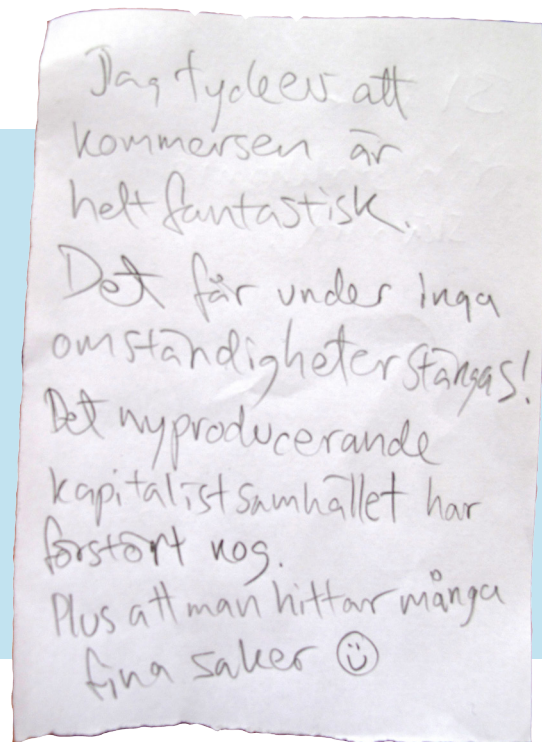 Jag tycker att
kommersen är
helt fantastisk.
Det får under inga
omständigheter stängas!
Det nyproducerande
kapitalistsamhället har
förstört nog.
Plus att man hittar många
fina saker ☺